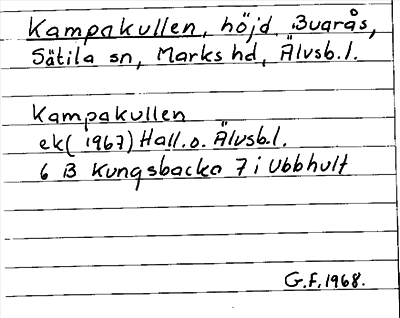 Kampakullen, höjd, Buarås,
Sätila sn, Marks hd, Älvsb.l.
Kampakullen
ek(1967) Hall.o. Älvsb.l.
6 B Kungsbacka 7 i Ubbhult
G.F. 1968.